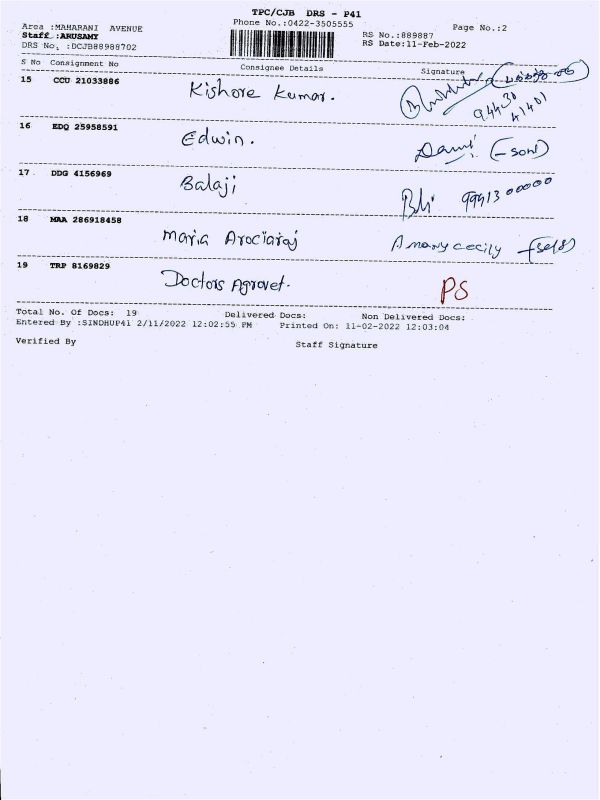 TPC/CJB DRS - P41
Area :MAHARANI AVENUE
Phone No.:0422-3505555
Page No.:2
Staff :ARUSAMY
RS No.:889887
DRS No. :DCJB88988702
RS Date:11-Feb-2022
S No Consignment No Consignee Details Signature
15 CCU 21033886 Kishore Kumar. 94430 41401
16 EDQ 25958591 Edwin. (-son)
17 DDG 4156969 Balaji 99413 00000
18 MAA 286918458 Maria Arociaraj A mary cecily -(self)
19 TRP 8169829 Doctors Agrovet. PS
Total No. Of Docs: 19 Delivered Docs: Non Delivered Docs:
Entered By :SINDHUP41 2/11/2022 12:02:55 PM Printed On: 11-02-2022 12:03:04
Verified By Staff Signature